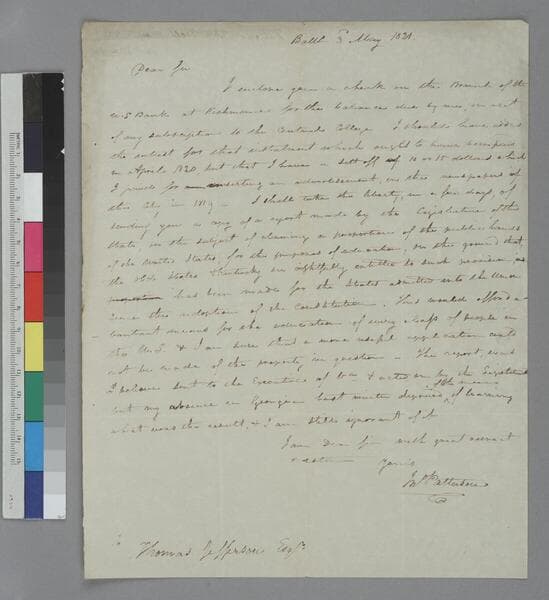 Balt 3d May 1821.
Dear Sir
I enclose you a check on the Branch of the
U.S Bank at Richmond for the balance due by me, on acct
of my subscription to the Central College. I should have added
the interest for that instalment which ought to have been paid
in April 1820, but that I have a sett off of 10 or 15 dollars which
I paid for inserting an advertisement, in the newspapers of
this City in 1819 — I shall take the liberty, in a few days, of
sending you a copy of a report made by the Legislature of this
State, on the subject of claiming a proportion of the public lands
of the United States, for the purposes of education, on the ground that
the old States & Kentucky are rightfully entitled to such provision as
has been made for the States admitted into the Union
since the adoption of the constitution. This would afford
abundant means for the education of every class of people in
the U.S. & I am sure that a more useful application could
not be made of the property in question — The report, was
I believe sent to the Executive of & acted on by the Legislature
but my absence in Georgia last winter deprived me of the means of learning
what was the result, & I am still ignorant of it
I am Dear Sir with great respect
& esteem Yours
Jno Patterson
Thomas Jefferson Esqr.